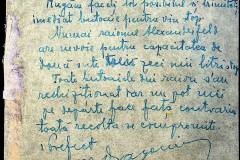 Rugăm faceți tot posibilul și trimiteți
imediat butoaie pentru vin
Numai raionul Alexanderfeld
are nevoie pentru capacitatea de
două sute zeci mii litri
Toate butoaiele din raion s'au
rechiziționat iar nu pot
se depărte face față contrariu
toată recolta se compromite
Prefect